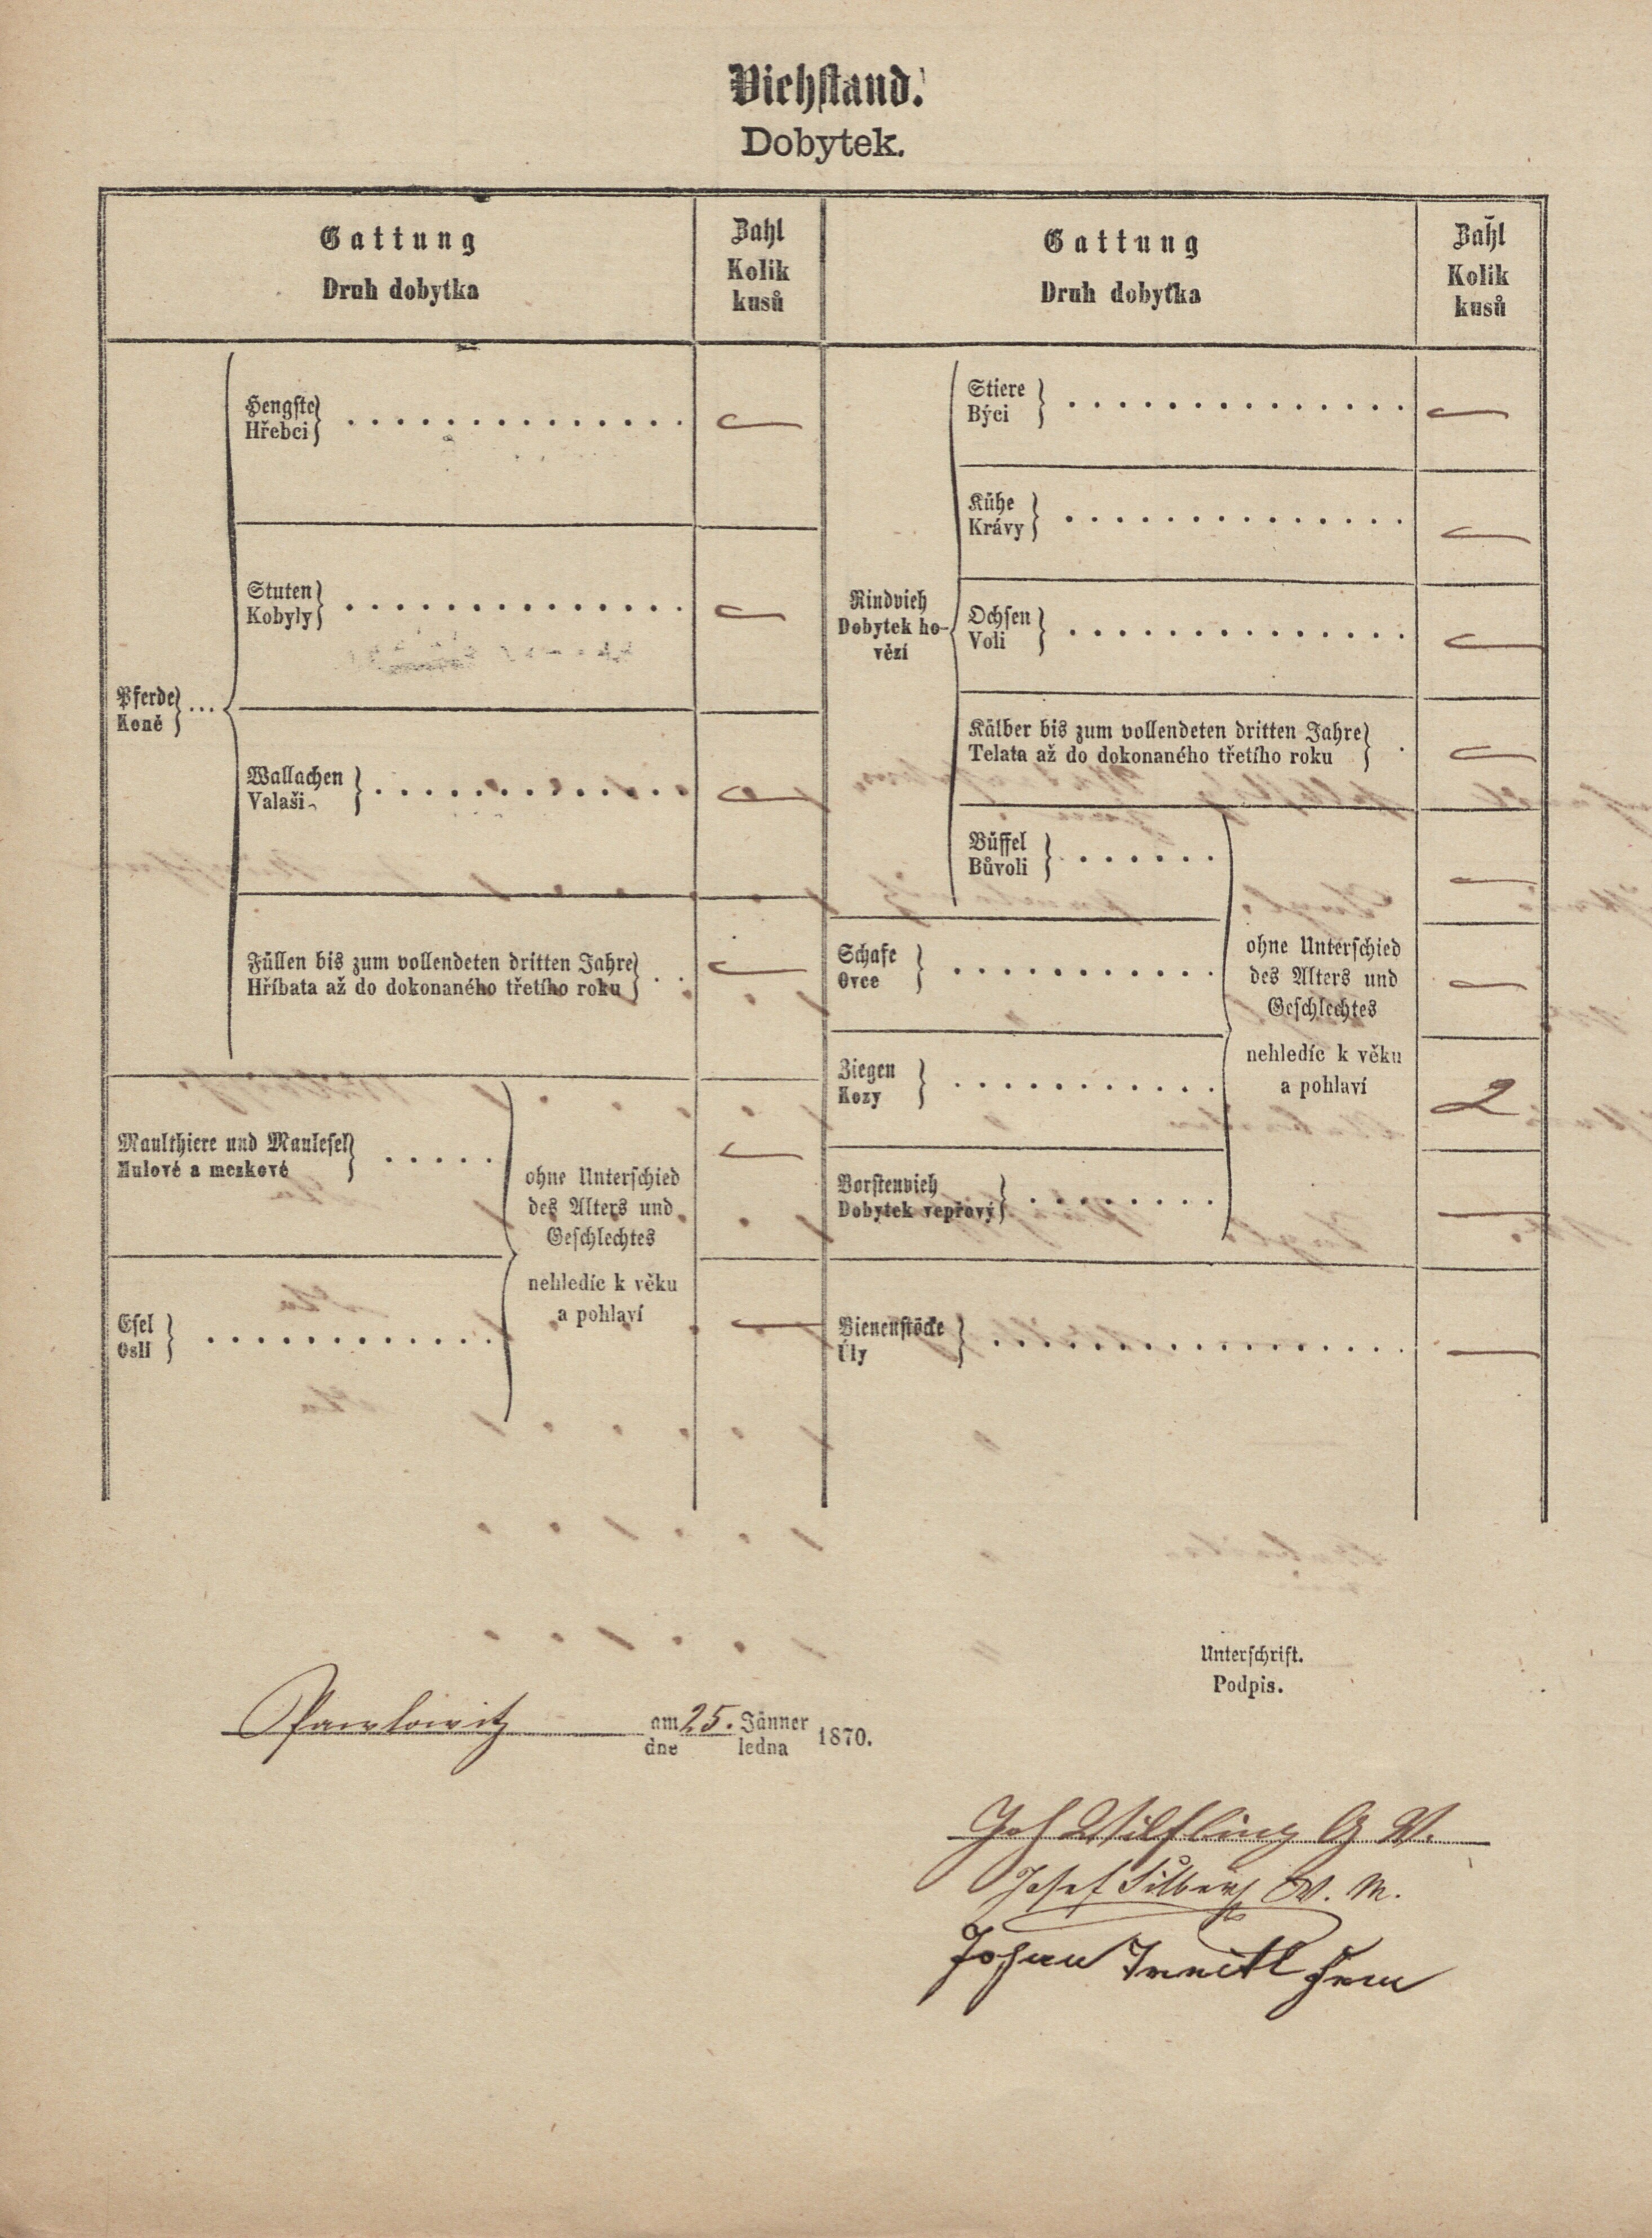 Viehstand.
Dobytek.
Gattung
Druh dobytka
Zahl
Kolik
kusů
Gattung
Druh dobytka
Zahl
Kolik
kusů
Pferde
Koně
Hengste
Hřebci
—
Stuten
Kobyly
—
Wallachen
Valaši
—
Füllen bis zum vollendeten dritten Jahre
Hříbata až do dokonaného třetího roku
—
Maulthiere und Maulesel
Mulové a mezkové
—
Esel
Osli
—
ohne Unterschied
des Alters und
Geschlechtes
nehledíc k věku
a pohlaví
Rindvieh
Dobytek ho-
vězí
Stiere
Býci
—
Kühe
Krávy
—
Ochsen
Voli
—
Kälber bis zum vollendeten dritten Jahre
Telata až do dokonaného třetího roku
—
Büffel
Bůvoli
—
Schafe
Ovce
—
Ziegen
Kozy
2
Borstenvieh
Dobytek vepřový
—
ohne Unterschied
des Alters und
Geschlechtes
nehledíc k věku
a pohlaví
Bienenstöcke
Úly
—
Unterschrift.
Podpis.
Pawlowitz am 25. Jänner 1870.
dne ledna
Joh Wilfling G V.
Josef
Johan